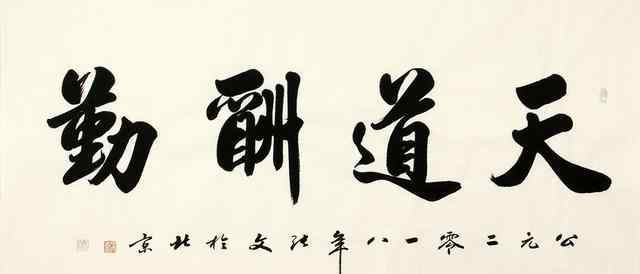 天道酬勤
公元二零一八年张文於北京